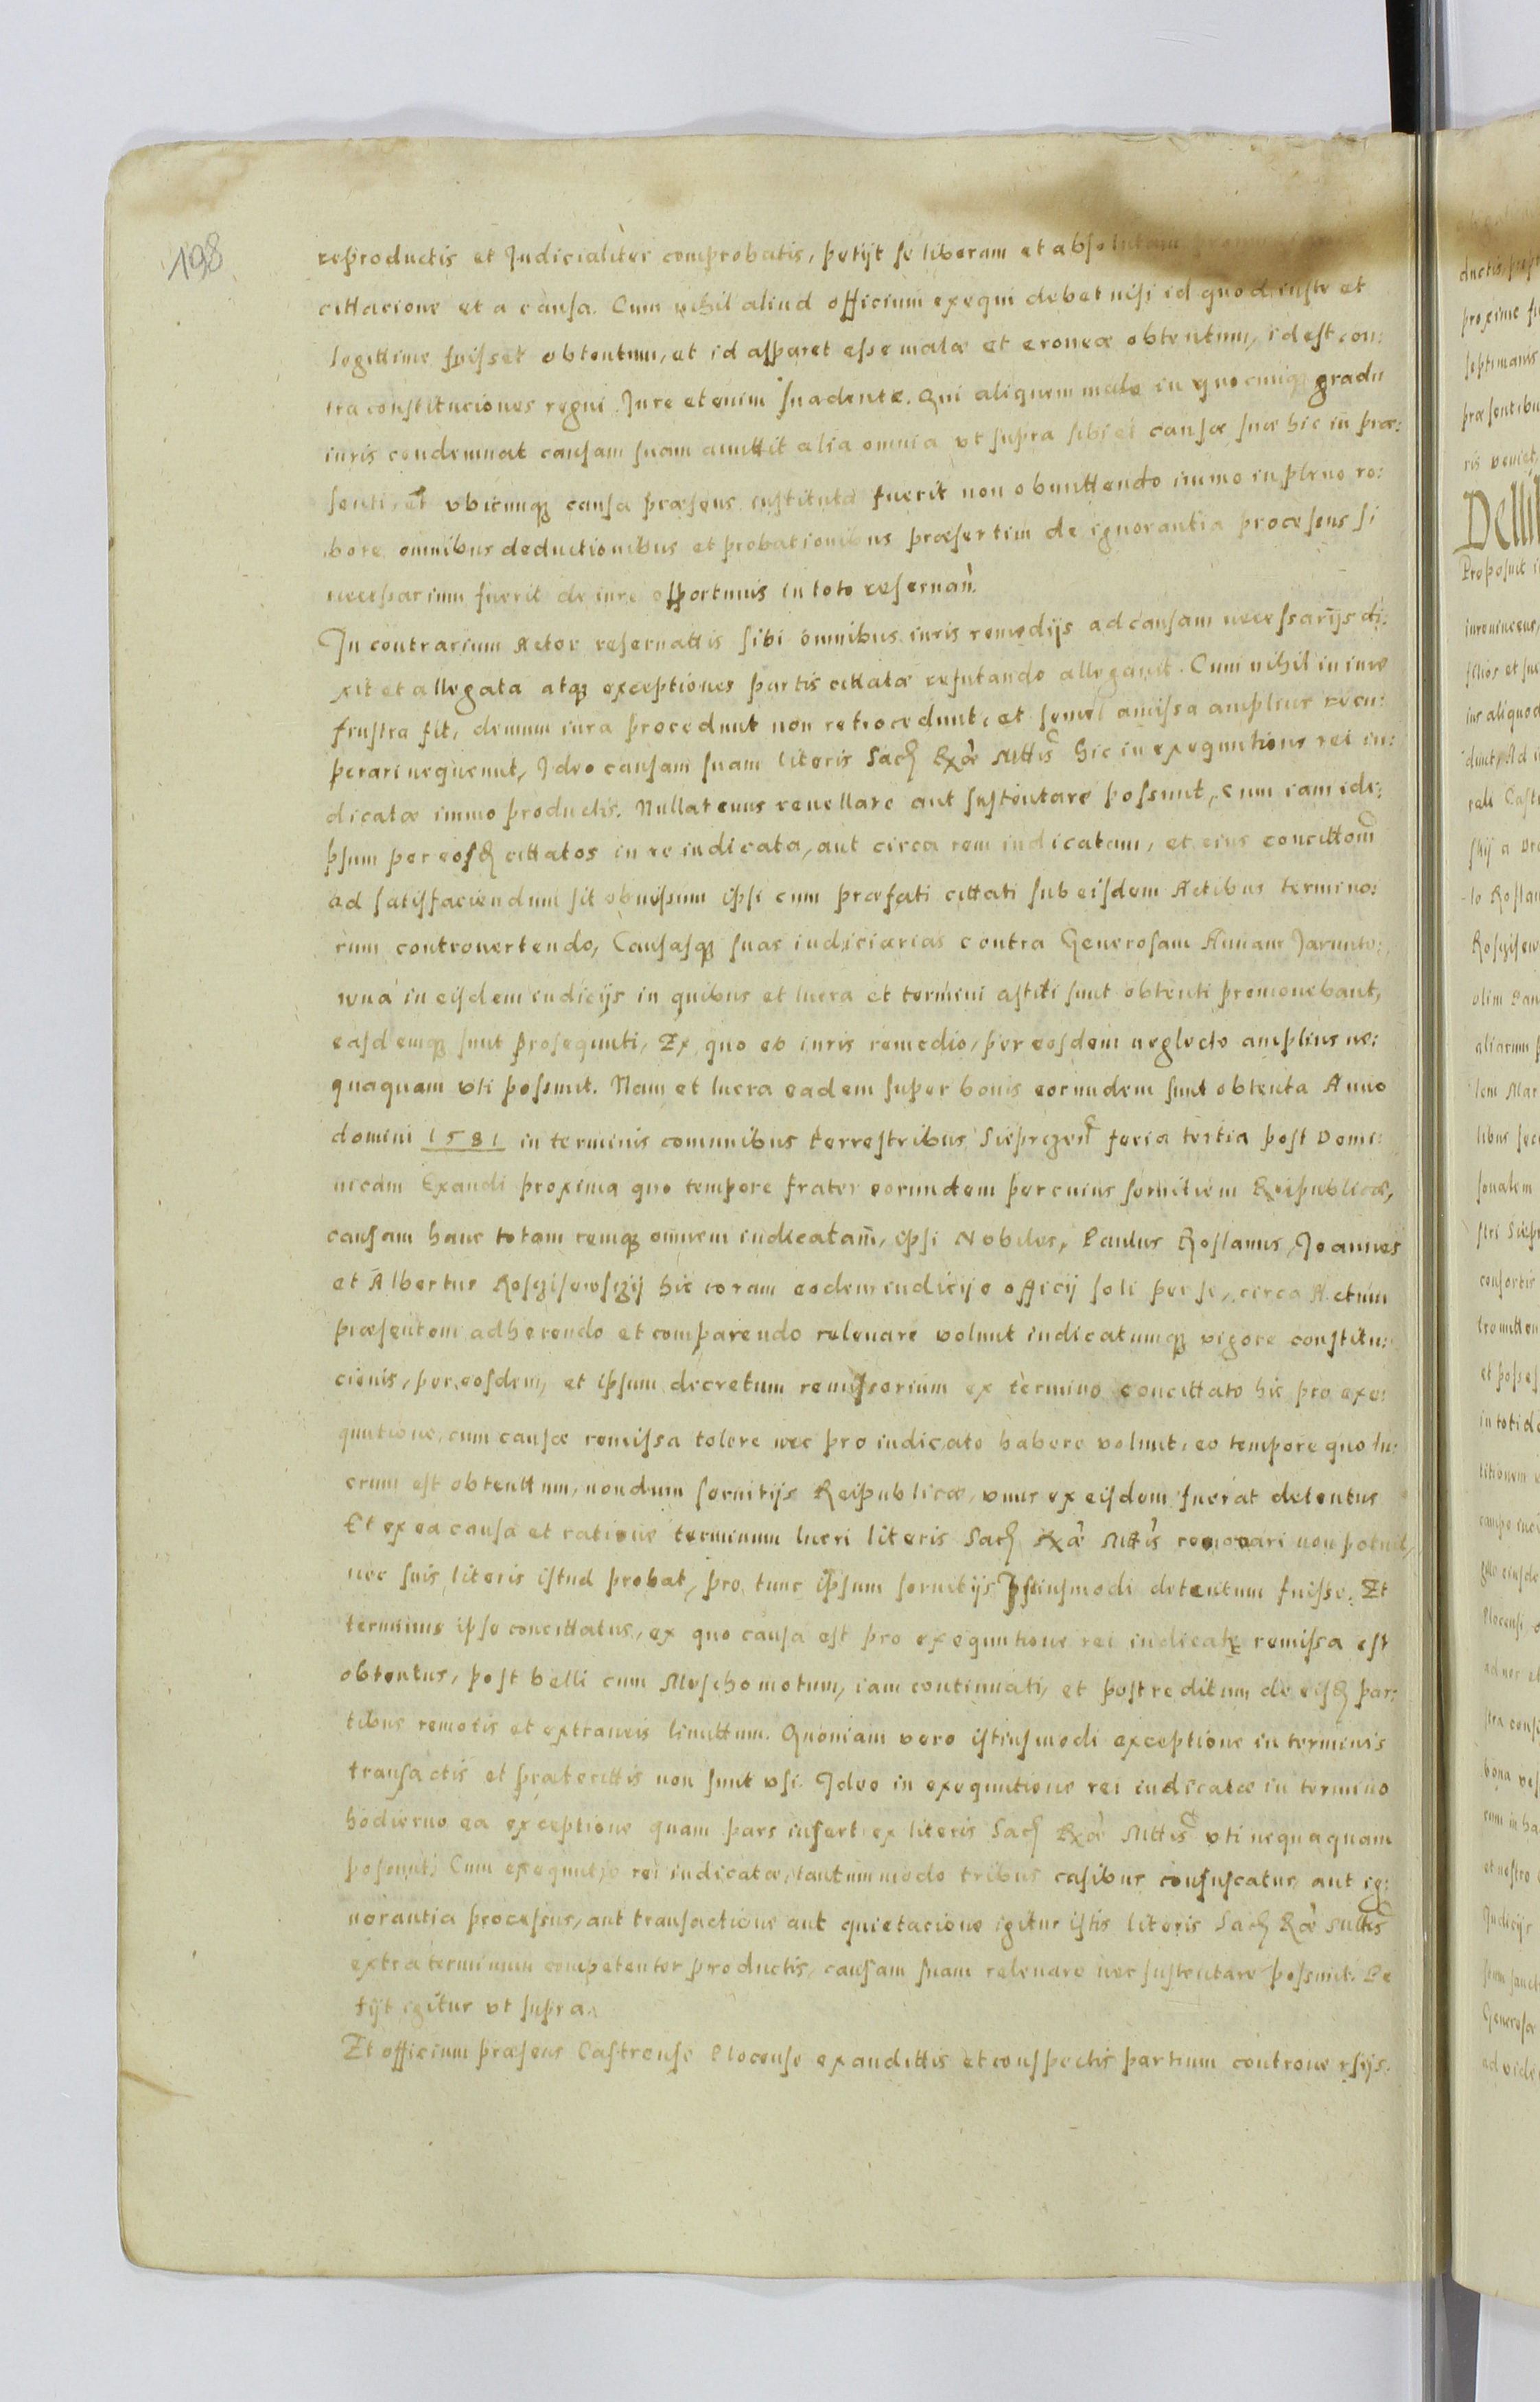 198
reproductis et Judicialiter comprobatis, petyt se liberam et absolutam
cittacione et a causa. Cum nihil aliud officium exequi debet nisi id quod iuste et
legittime fuisset obtentum, et id apparet esse malæ et eroneæ obtentum, id est con:
tra constituciones regni Jure etenim suadente. Qui aliquem male in quocunq gradu
iuris condemnat causam suam amittit alia omnia vt supra sibi et causæ suæ hic in præ:
senti, et vbicunq causa præsens instituta fuerit non obmittendo immo in pleno ro:
bore omnibus deductionibus et probationibus præsertim de ignorantia procesus si
necessarium fuerit de iure opportunis in toto reseruan.
In contrarium Actor reseruattis sibi omnibus iuris remedijs ad causam necessarijs di:
xit et allegata atq exceptiones partis cittatæ refutando allegauit. Cum nihil in iure
frustra fit, demum iura procedunt non retrocedunt, et semel amissa amplius recu:
perari nequeunt, Ideo causam suam literis Sac Ræ Mttis hic in exequutione rei iu:
dicatæ immo productis. Nullatenus reuellare aut sustentare possunt, cum iam idi:
psum per eosd cittatos in re iudicata, aut circa rem iudicatam, et eius concittom
ad satisfaciendum sit obmissum ipsi cum præfati cittati sub eisdem Actibus termino:
rum controuertendo, Causasq suas iudiciarias contra Generosam Annam Jarunto:
wna in eisdem iudicijs in quibus et lucra et termini astiti sunt obtenti promouebant,
easdemq sunt prosequuti, Ex quo eo iuris remedio, per eosdem neglecto amplius ne:
quaquam vti possunt. Nam et lucra eadem super bonis eorundem sunt obtenta Anno
domini 1581 in terminis comunibus terrestribus Sieprcen feria tertia post Domi:
nicam Exaudi proxima quo tempore frater eorundem per cuius seruitium Reipublicæ,
causam hanc totam remq omnem iudicatam, ipsi Nobiles, Paulus Roslanus, Joannes
et Albertus Rosziszewszij hic coram eodem iudicijo officij soli per se, circa Actum
præsentem adherendo et comparendo releuare volunt iudicatumq vigore constitu:
cionis, per eosdem, et ipsum decretum remissorium ex termino concittato hic pro exe:
quutione, cum causæ remissa tolere nec pro iudicato habere volunt, eo tempore quo lu:
crum est obtenttum, nondum seruitijs Reipublicæ, vnus ex eisdem fuerat detentus
Et ex ea causa et ratione terminum lucri literis Sac Ræ Mttis remorari non potuit,
nec suis literis istud probat, pro tunc ipsum seruitijs istiusmodi detentum fuisse. Et
terminus ipse concittatus, ex quo causa est pro exequutione rei iudicatę remissa est
obtentus, post belli cum Moscho motum, iam continuati, et post reditum de eisd par:
tibus remotis et extraneis linuttum. Quoniam vero istiusmodi exceptione in terminis
transactis et præterittis non sunt vsi. Ideo in exequutione rei iudicatæ in termino
hodierno ea exceptione quam pars infert ex literis Sac Ræ Mttis vti nequaquam
possunt. Cum exequutio rei iudicatæ, tantummodo tribus casibus confuscatur aut ig:
norantia procesus, aut transactione aut quietacione igitur istis literis Sac Ræ Mttis
extra terminum competenter productis, causam suam releuare nec sustentare possunt. Pe
tijt igitur vt supra.
Et officium præsens Castrense Plocense exaudittis et conspectis partium controuersijs.